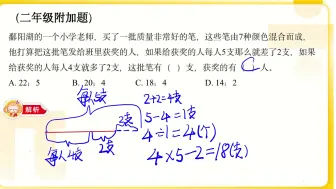 （二年级附加题）
鄱阳湖的一个小学老师，买了一批质量非常好的笔，这些笔由7种颜色混合而成，
他打算把这批笔发给班里获奖的人，如果给获奖的人每人5支那么就差了2支，如果
给获奖的人每人4支就多了2支，这批笔有（ ）支，获奖的有 C 人。
A. 22；5 B. 20；4 C. 18；4 D. 14；2
解析
每人5支
2支
每人4支 2支
2+2=4支
5-4=1支
4÷1=4(个)
4×5-2=18(支)